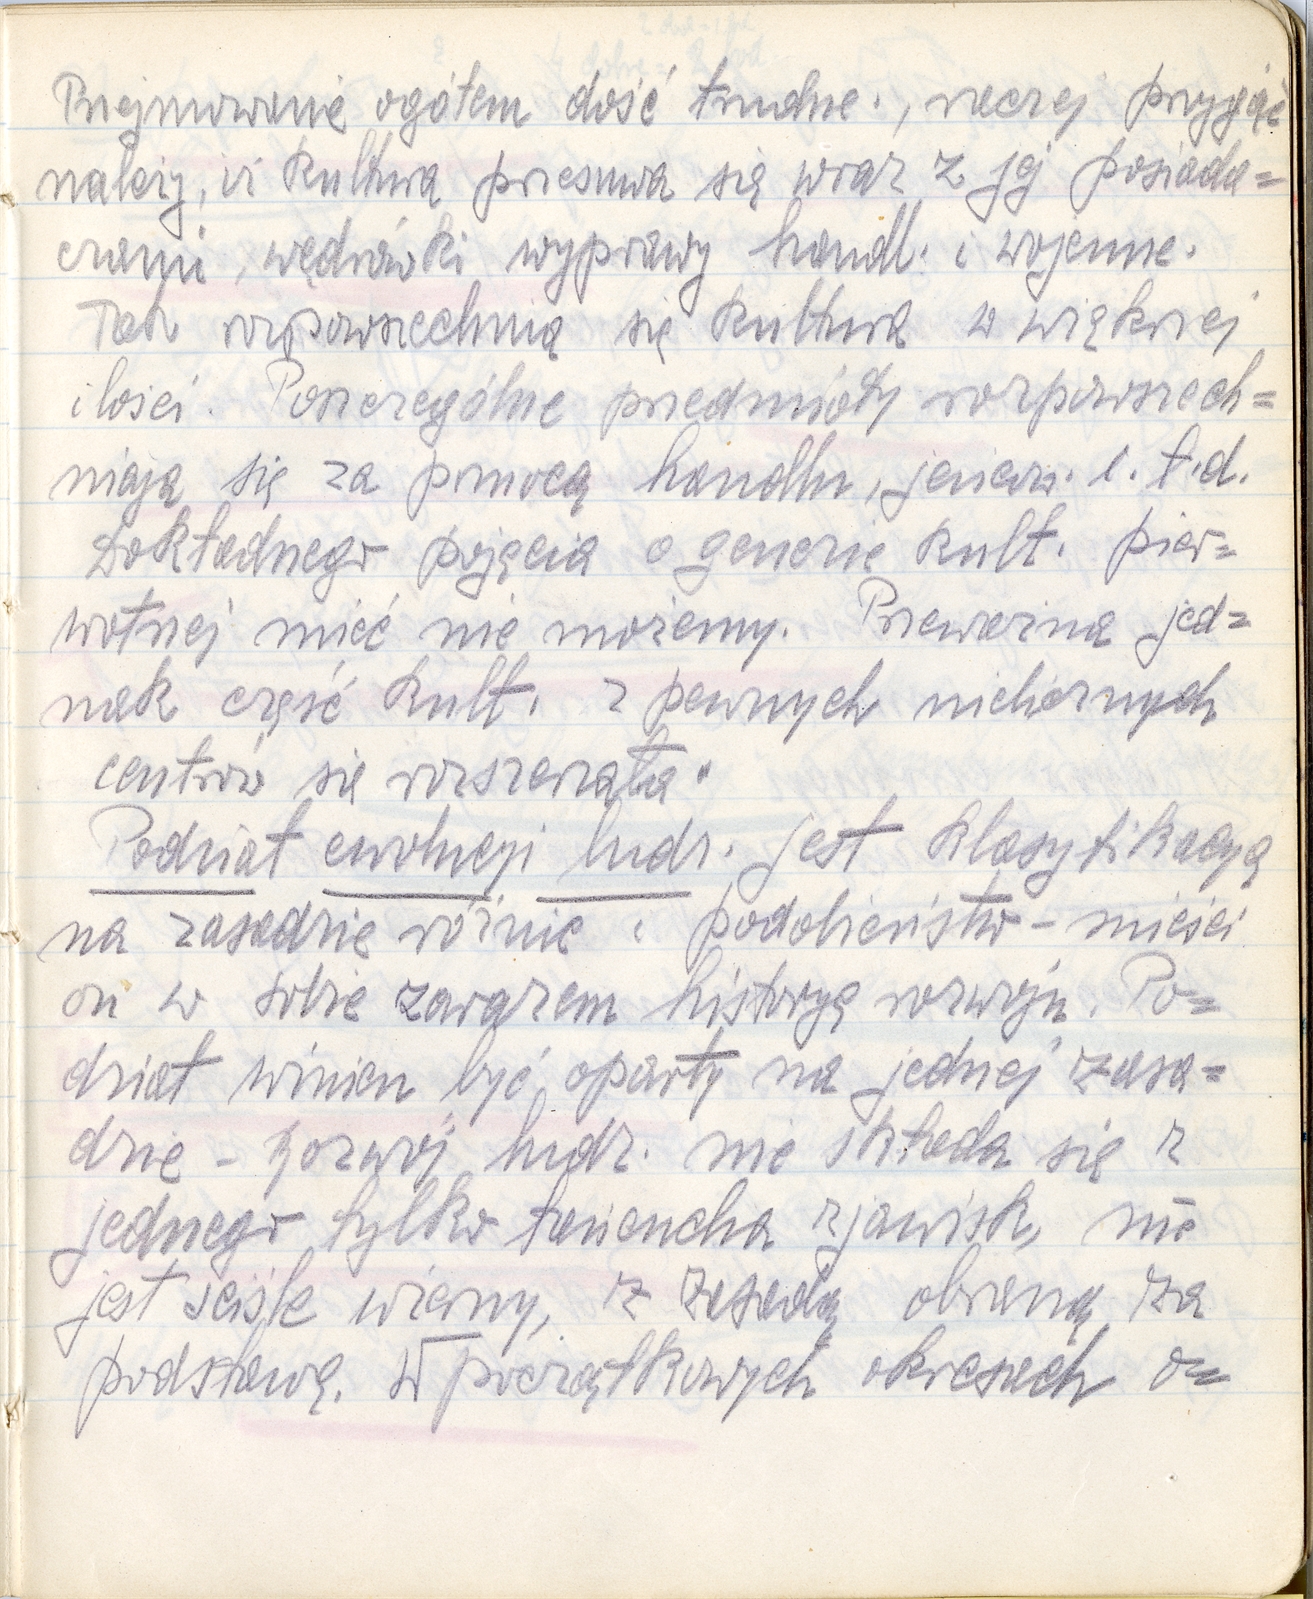 Przejmowanie ogółem dość trudne., raczej przyjąć
należy, iż kultura przesuwa się wraz z jej posiada=
czami, wędrówki wyprawy handl. i wojenne.
Tak rozpowszechnia się kultura w większej
ilości. Poszczególne przedmioty rozpowszech=
niają się za pomocą handlu, jeńców. i. t.d.
Dokładnego pojęcia o genezie kult. pier=
wotnej mieć nie możemy. Przeważna jed=
nak część kult. z pewnych nielicznych
centrów się rozszerzała.
Podział ewolucyi ludz. jest klasyfikacyą
na zasadzie różnic i podobieństw – mieści
on w sobie zarazem historyę rozwoju. Po=
dział winien być oparty na jednej zasa=
dzie – Rozwój ludz. nie składa się z
jednego tylko łańcucha zjawisk, nie
jest ściśle wierny, z zasadą obraną za
podstawę. W początkowych okresach o=